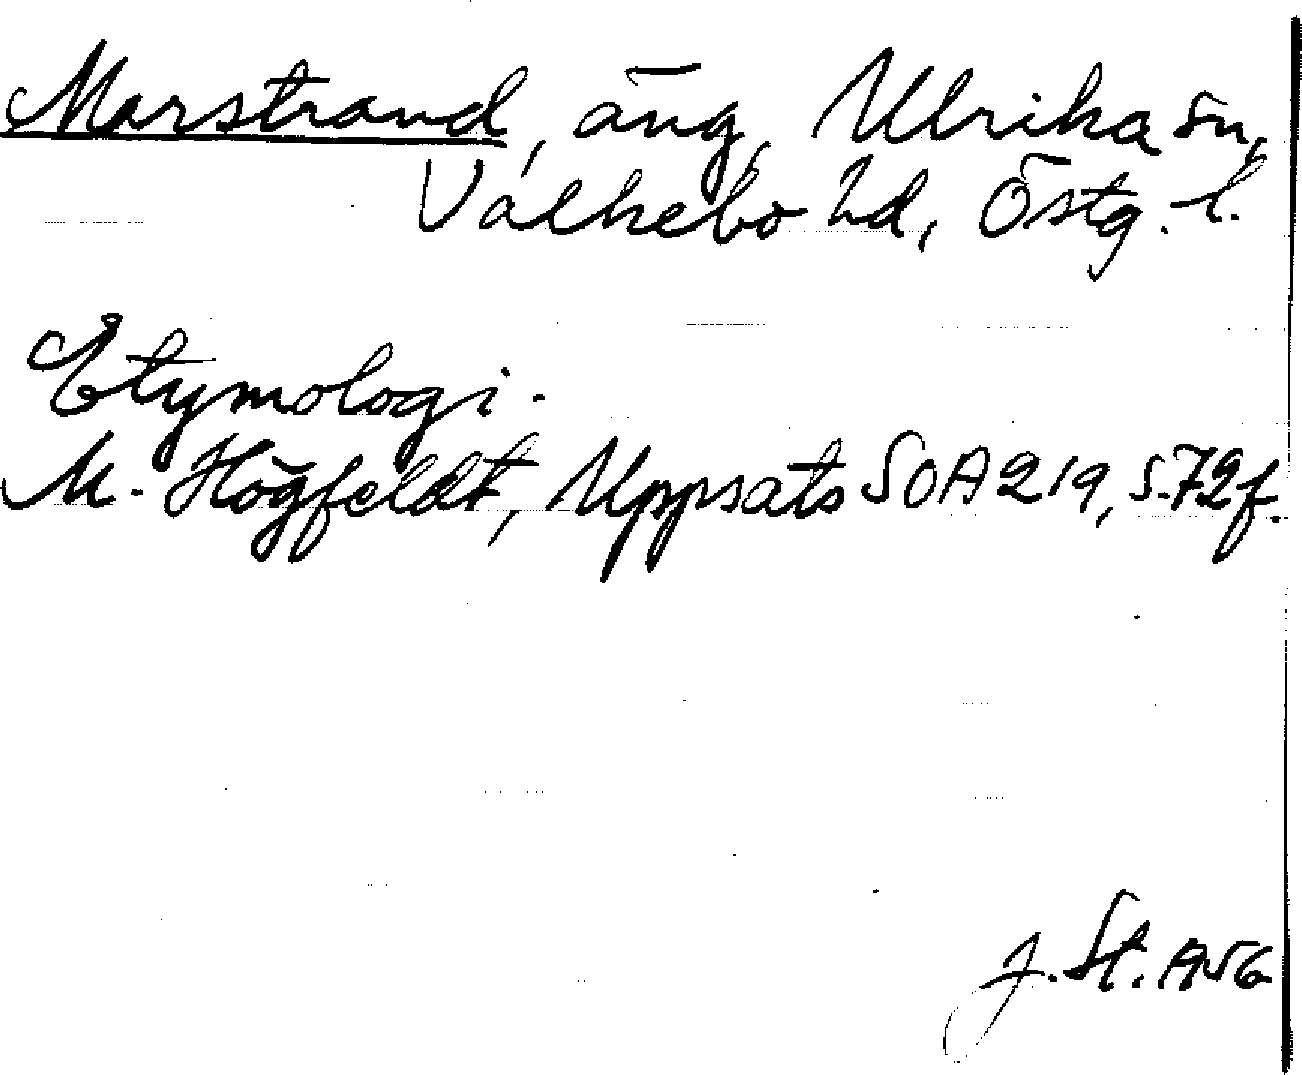 Marstrand, äng, Ulrika sn,
Valkebo hd, Östg. l.
Etymologi.
M. Högfeldt, Uppsats SOA 219, s. 72 f.
J. St. 1956